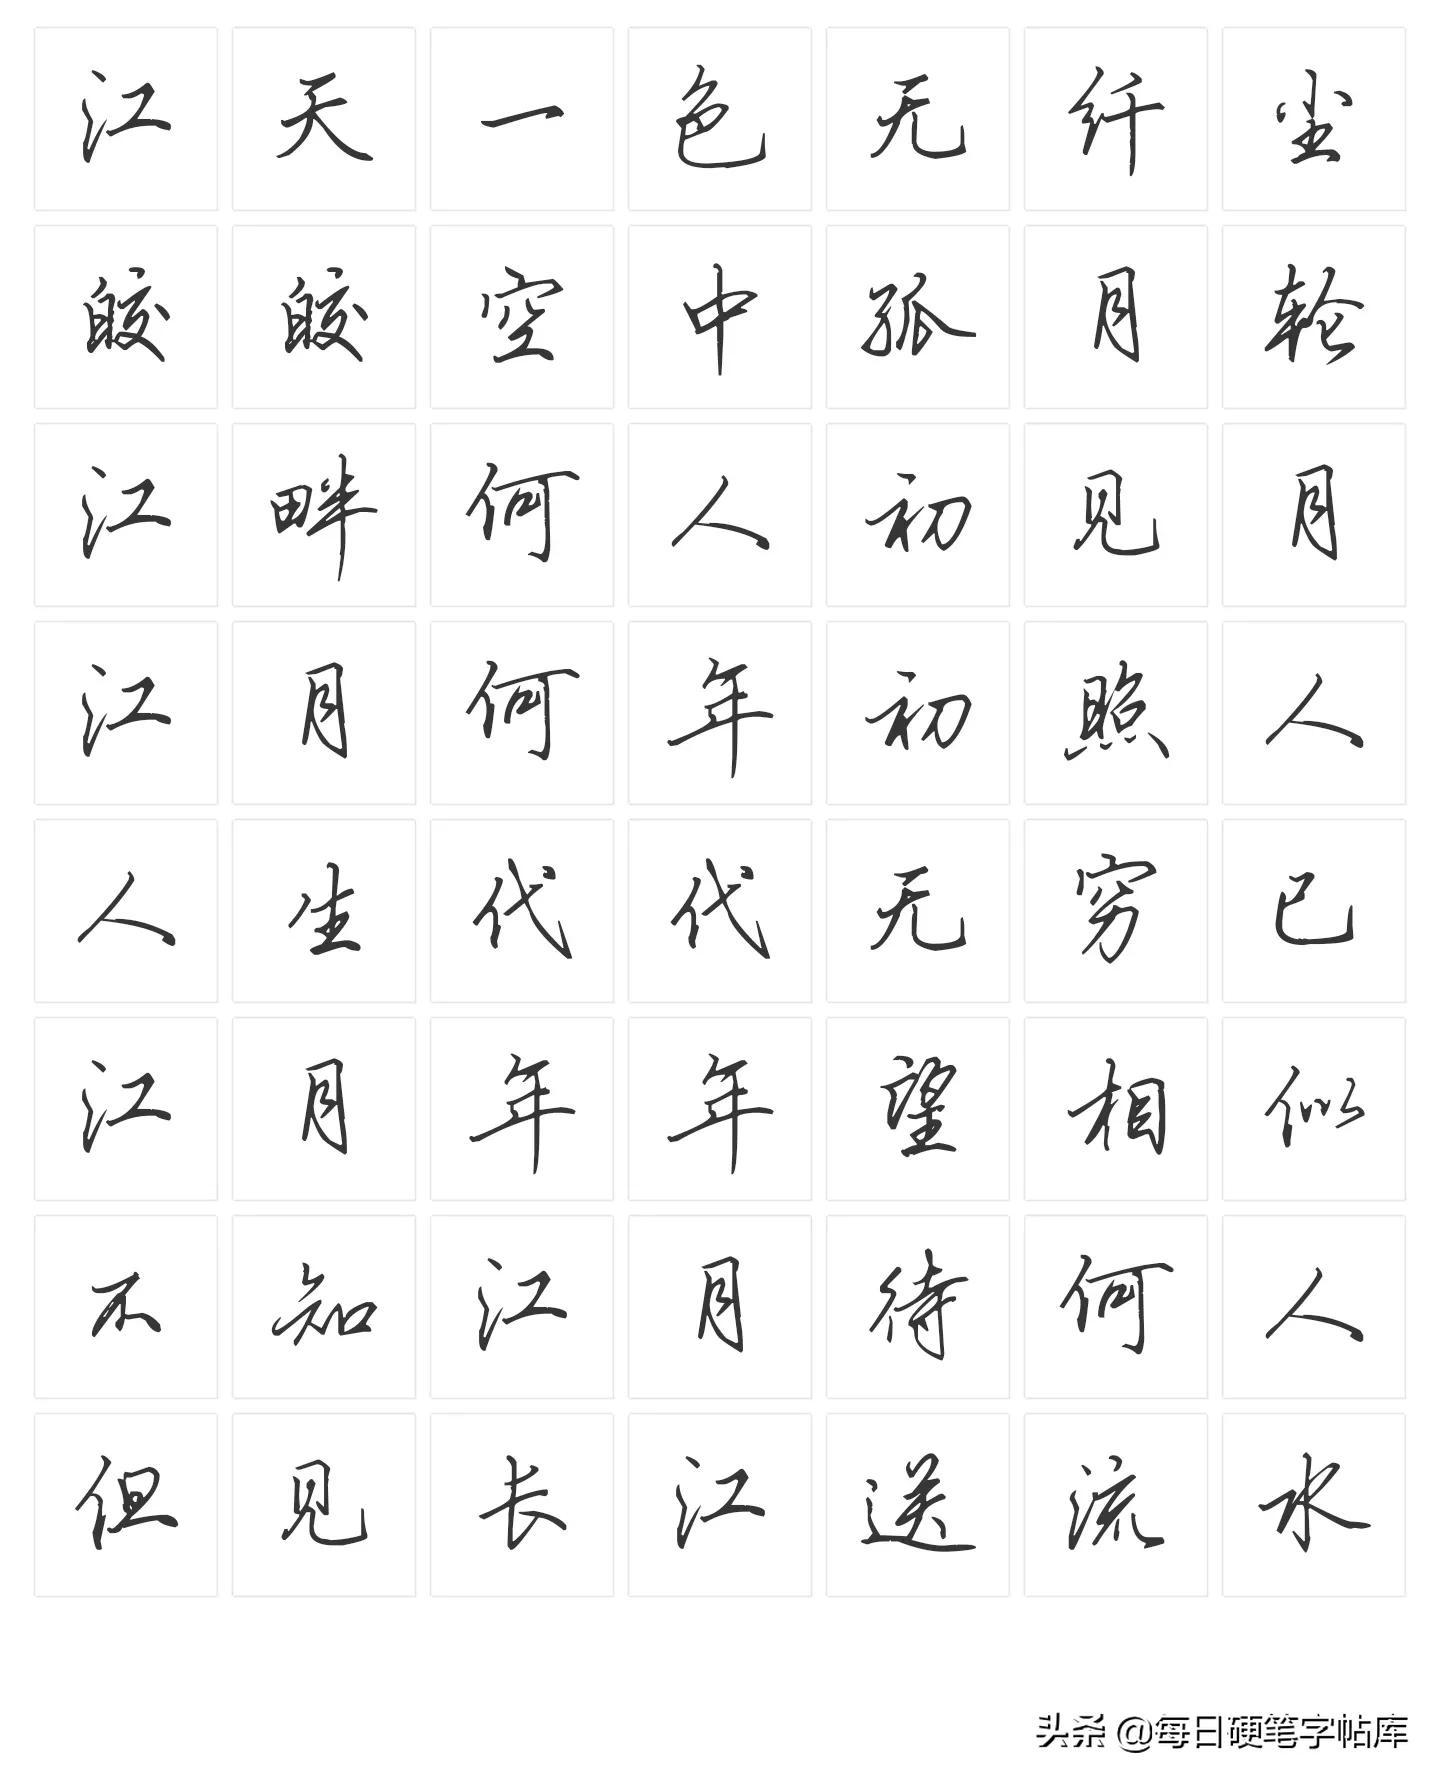 江天一色无纤尘
皎皎空中孤月轮
江畔何人初见月
江月何年初照人
人生代代无穷已
江月年年望相似
不知江月待何人
但见长江送流水
头条 @每日硬笔字帖库